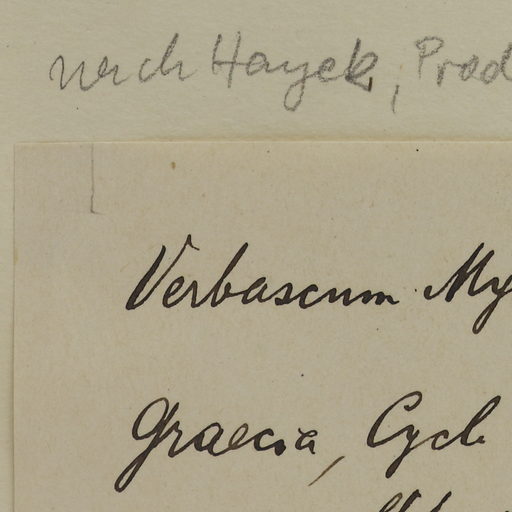 nach Hayek, Prod
Verbascum My
Graecia, Cycl